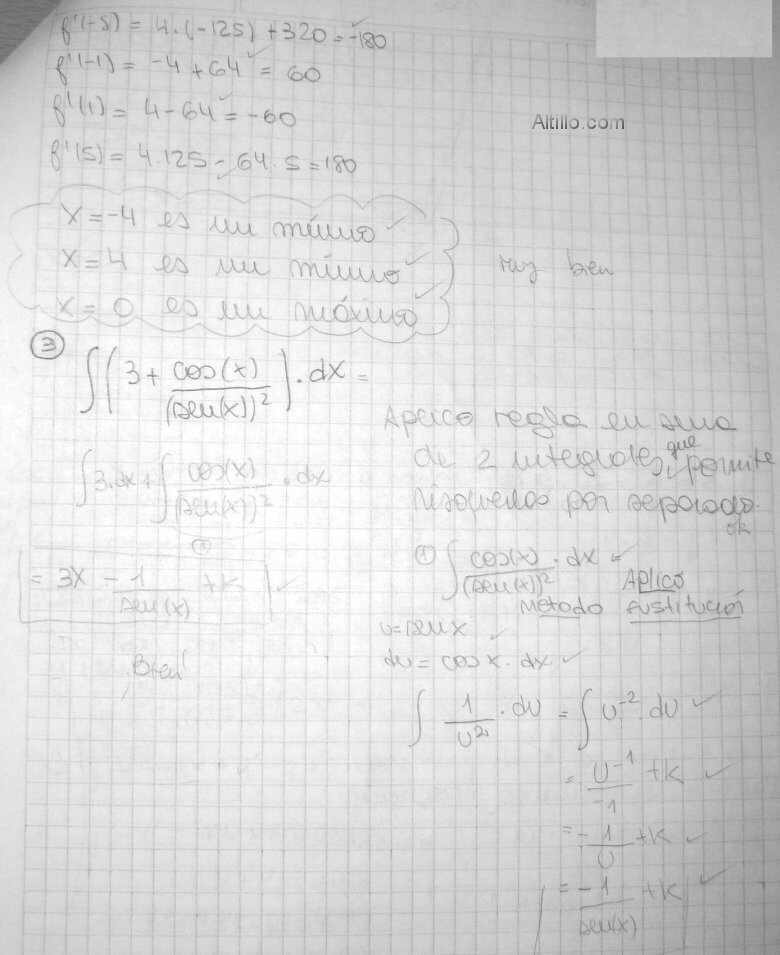 f'(-5) = 4.(-125) + 320 = -180
f'(-1) = -4 + 64 = 60
f'(1) = 4 - 64 = -60
Altillo.com
f'(5) = 4.125 - 64.5 = 180
x = -4 es un mínimo
x = 4 es un mínimo
muy bien
x = 0 es un máximo
3
∫(3 + cos(x)/(sen(x))²).dx =
Aplico regla en suma
de 2 integrales, que permite
resolverlos por separado.
ok
∫3.dx + ∫cos(x)/(sen(x))² . dx
①
= 3x - 1/sen(x) + K
Bien
① ∫cos(x)/(sen(x))² . dx =
Aplico
método sustitución
u = sen x
du = cos x . dx
∫ 1/u² . du = ∫ u⁻² du
= u⁻¹/-1 + K
= -1/u + K
= -1/sen(x) + K